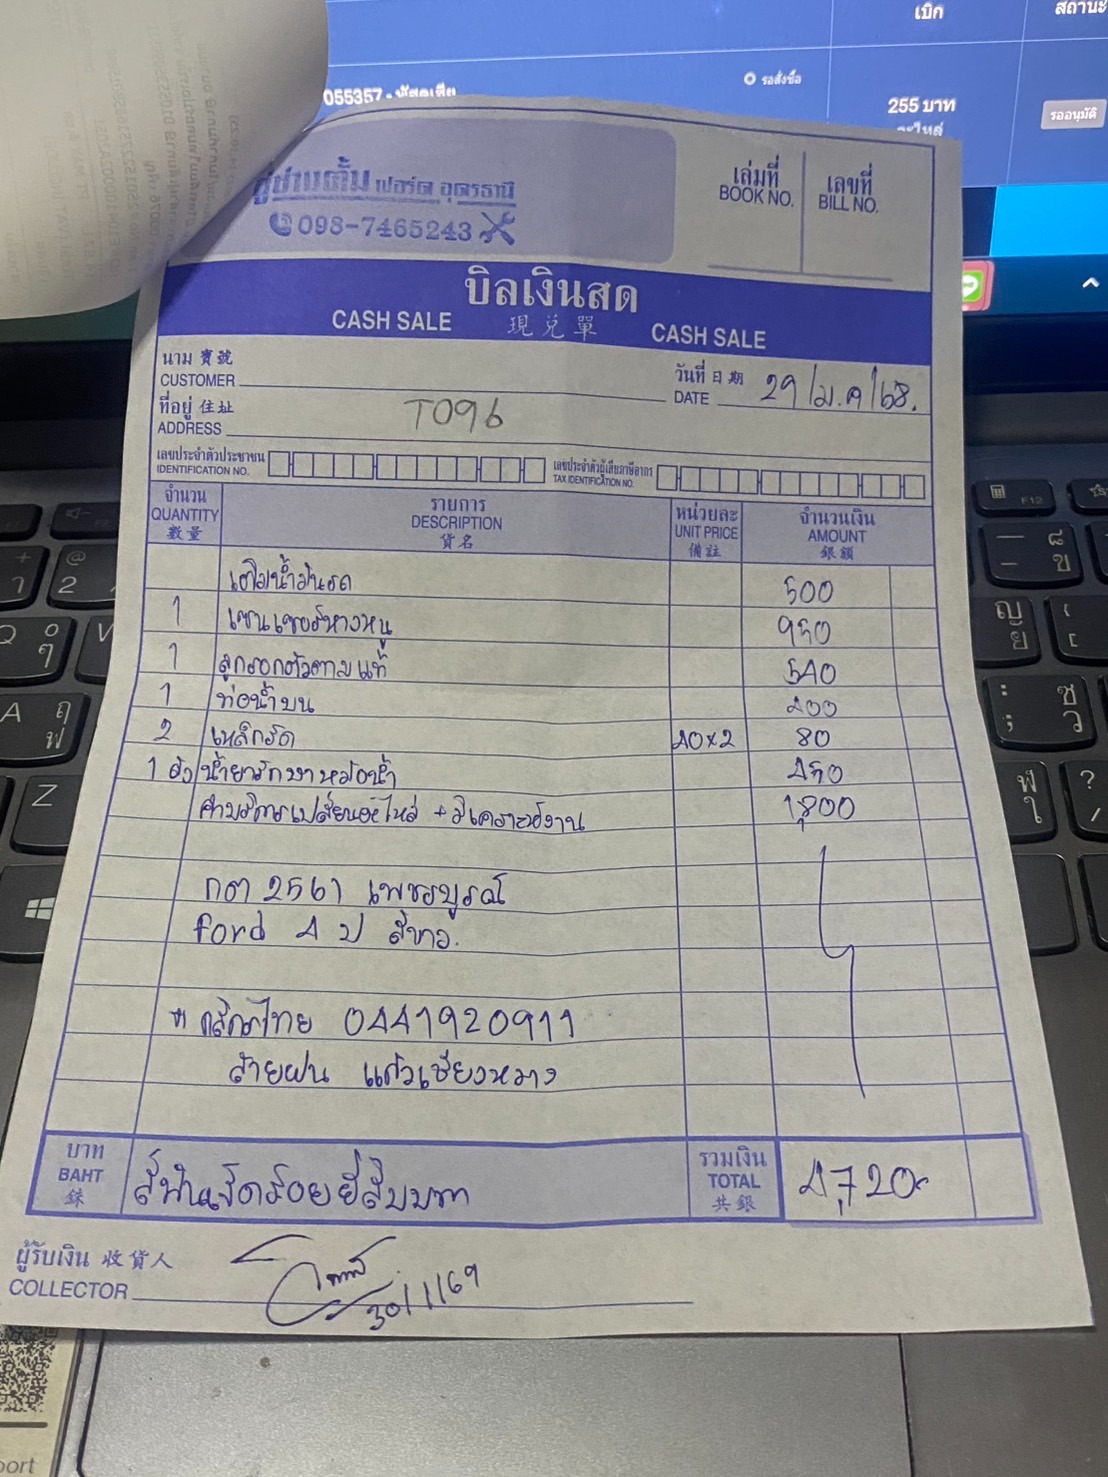 เบิก
สถานะ
055357 - พัสดุเสีย
รอสั่งซื้อ
255 บาท
อะไหล่
รออนุมัติ
อู่ช่างตั้ม ฟอร์ด อุดรธานี
098-7465243
เล่มที่ เลขที่
BOOK NO. BILL NO.
บิลเงินสด
CASH SALE 現兌單 CASH SALE
นาม 寶號
CUSTOMER
วันที่ 日期 29/ม.ค/68.
DATE
ที่อยู่ 住址 T096
ADDRESS
เลขประจำตัวประชาชน
IDENTIFICATION NO.
เลขประจำตัวผู้เสียภาษีอากร
TAX IDENTIFICATION NO.
จำนวน รายการ หน่วยละ จำนวนเงิน
QUANTITY DESCRIPTION UNIT PRICE AMOUNT
數量 貨名 備註 銀額
เติมน้ำมันรถ 500
1 เซนเซอร์หางหนู 950
1 ลูกรอกตัวตามแท้ 540
1 ท่อน้ำบน 400
2 เหล็กรัด 40×2 80
1 ถัง น้ำยารักษาหม้อน้ำ 450
ค่าบริการเปลี่ยนอะไหล่ + วิเคราะห์งาน 1,800
กตา 2561 เพชรบูรณ์
ford 4 ป สีขาว.
กสิกรไทย 0441920911
สายฝน แก้วเชียงหวาง
บาท
BAHT สี่พันเจ็ดร้อยยี่สิบบาท
銖
รวมเงิน
TOTAL 4,720.-
共銀
ผู้รับเงิน 收貨人
COLLECTOR
30/1/69